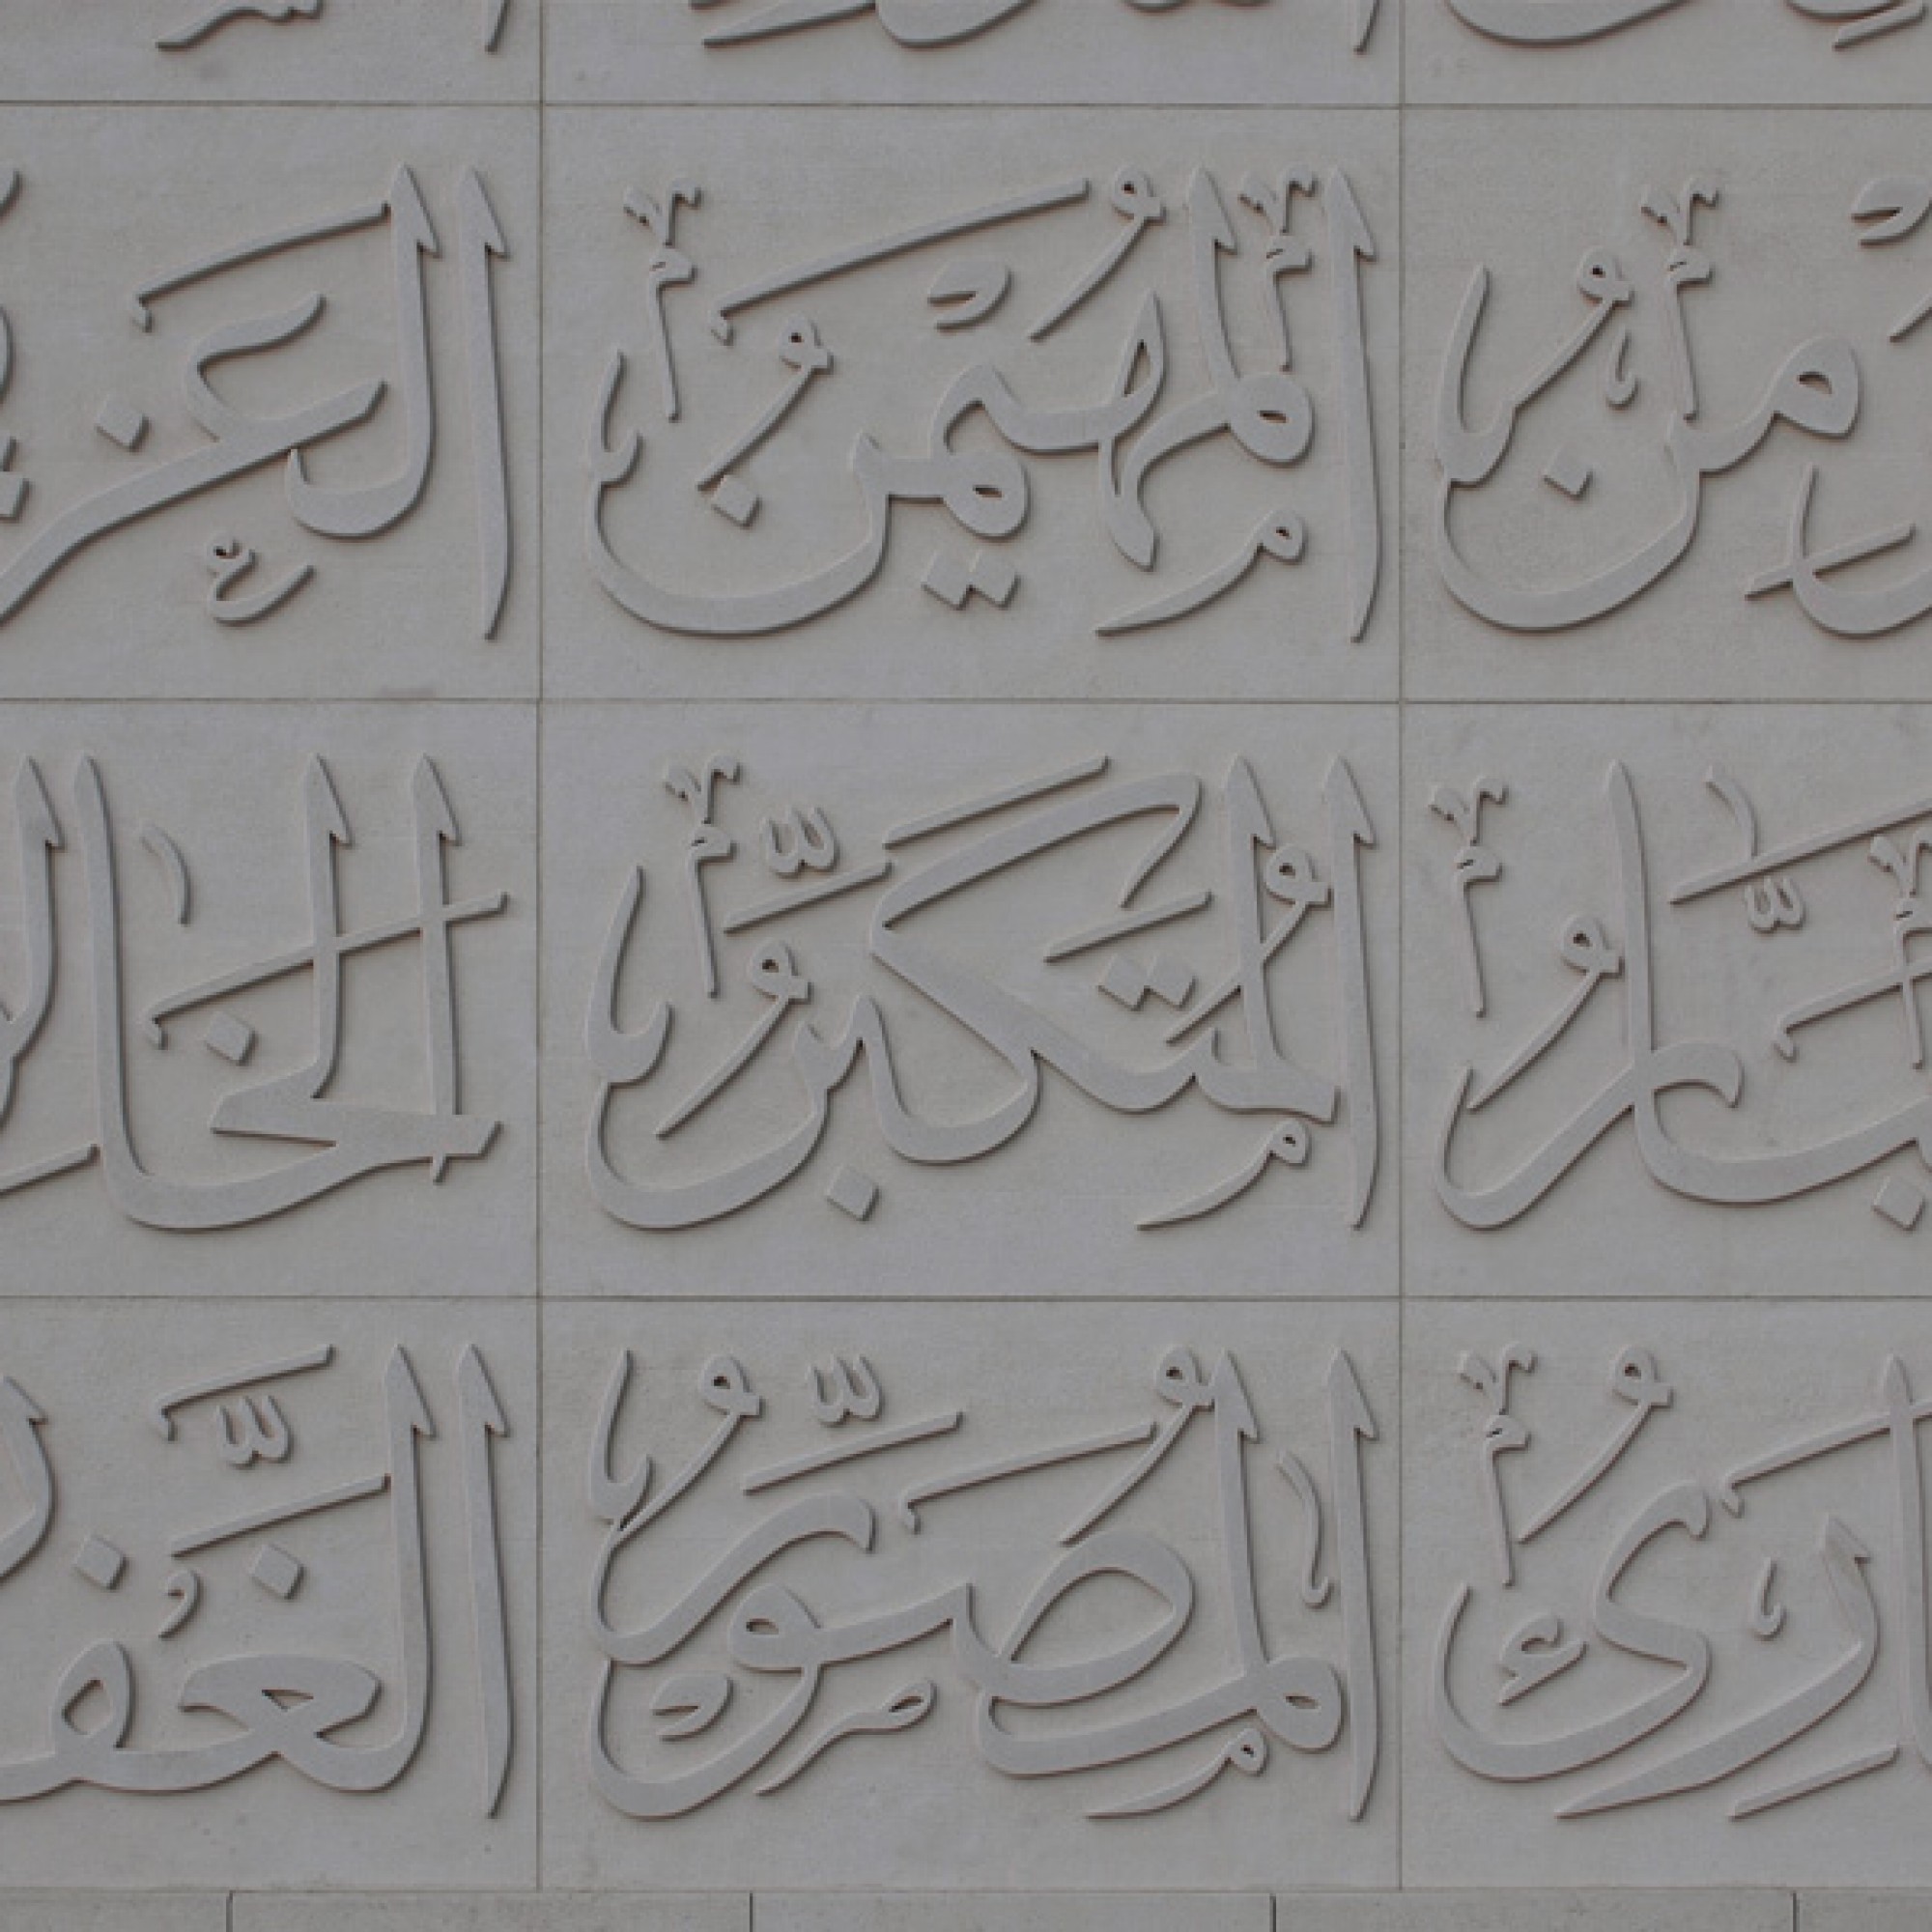 ـؤْمِنُ الْمُهَيْمِنُ الْعَزِيـ
ـبَّارُ الْمُتَكَبِّرُ الْخَالِـ
ـَارِئُ الْمُصَوِّرُ الْغَفَّـ